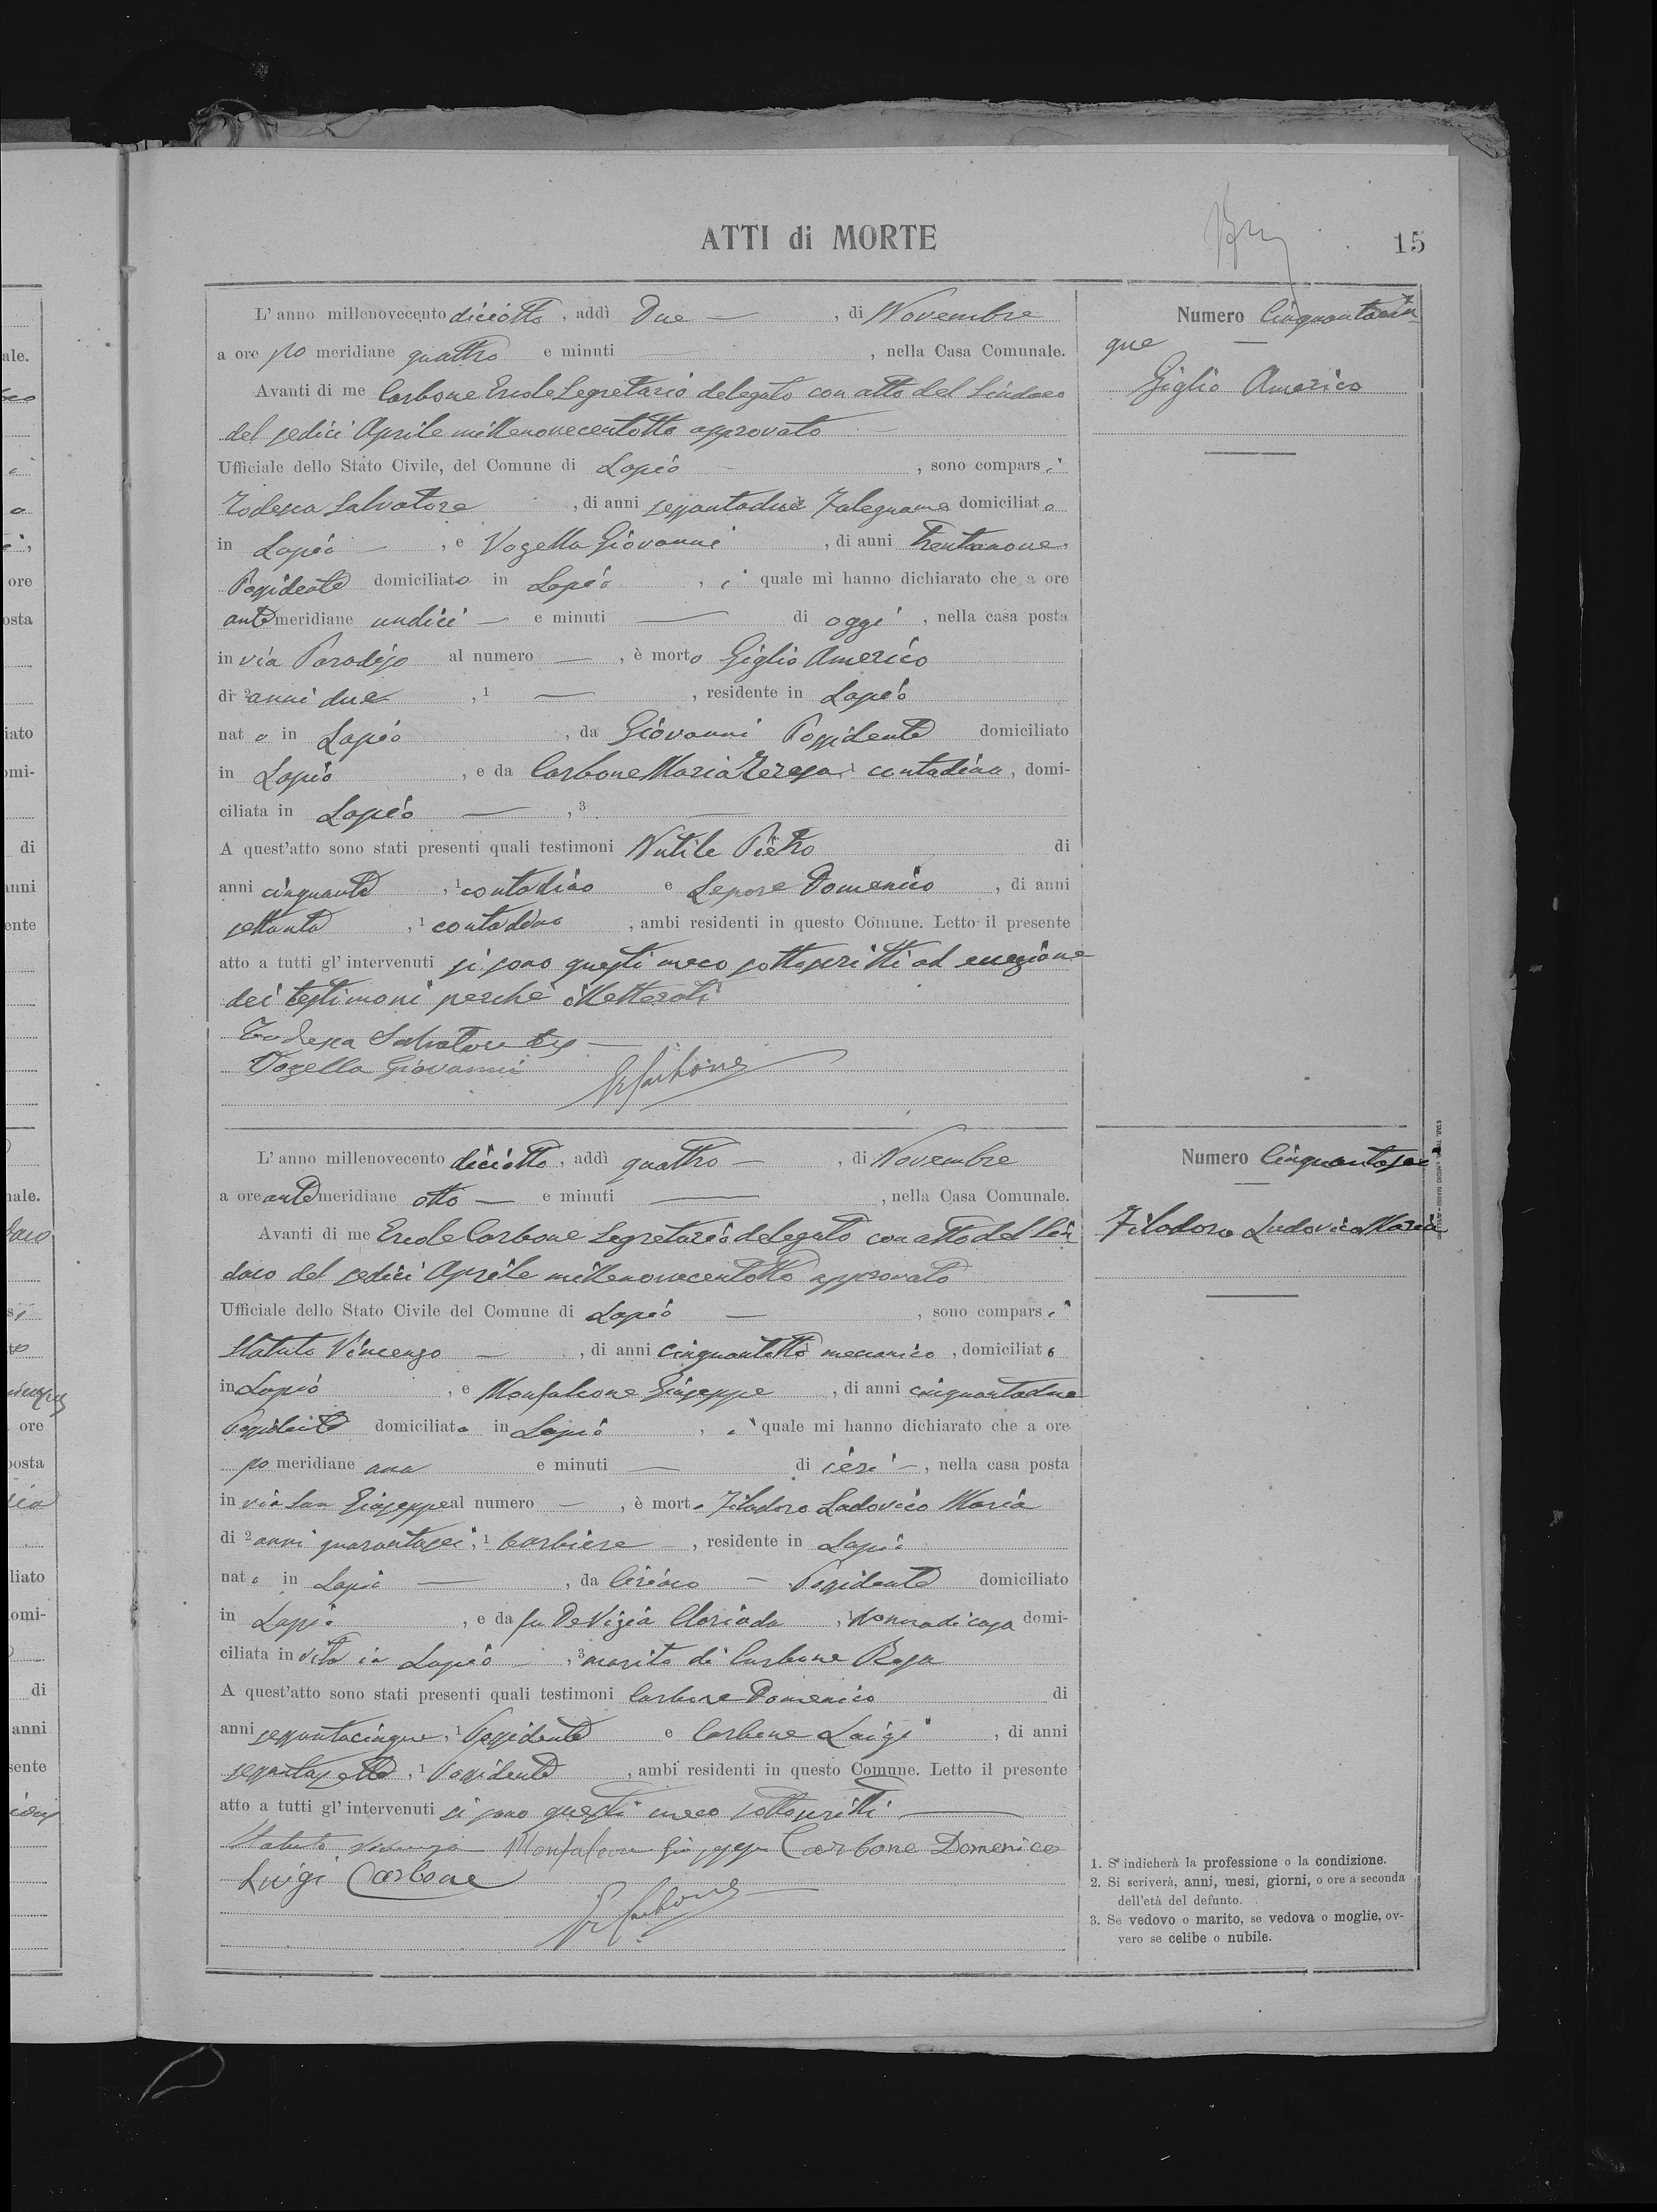 ATTI di MORTE
15
L'anno millenovecento diciotto, addì Due — , di Novembre
a ore po meridiane quattro e minuti — , nella Casa Comunale.
Avanti di me Carbone Ercole Segretario delegato con atto del Sindaco
del sedici Aprile millenovecentotto approvato —
Ufficiale dello Stato Civile, del Comune di Lapio — , sono comparsi
Todesca Salvatore , di anni sessantadue Falegname domiciliato
in Lapio — , e Vozella Giovanni , di anni trentanove
Possidente domiciliato in Lapio , i quale mi hanno dichiarato che a ore
antemeridiane undici — e minuti — di oggi , nella casa posta
in via Paradiso al numero — , è morto Giglio Americo
di 2 anni due , 1 — , residente in Lapio
nato in Lapio , da Giovanni Possidente domiciliato
in Lapio , e da Carbone Maria Teresa 1 contadina, domi-
ciliata in Lapio — , 3 —
A quest'atto sono stati presenti quali testimoni Nutile Pietro di
anni cinquanta , 1 contadino e Lepore Domenico , di anni
settanta , 1 contadino , ambi residenti in questo Comune. Letto il presente
atto a tutti gl'intervenuti si sono questi meco sottoscritti ad eccezione
dei testimoni perchè illetterati
Todesca Salvatore —
Vozella Giovanni
E Carbone
Numero Cinquantacin
que —
Giglio Americo
L'anno millenovecento diciotto, addì quattro — , di Novembre
a ore antemeridiane otto — e minuti — , nella Casa Comunale.
Avanti di me Ercole Carbone Segretario delegato con atto del Sin
daco del sedici Aprile millenovecentotto approvato
Ufficiale dello Stato Civile del Comune di Lapio — , sono comparsi
Statuto Vincenzo — , di anni cinquantotto meccanico , domiciliato
in Lapio , e Monfalcone Giuseppe , di anni cinquantadue
Possidente domiciliato in Lapio , i quale mi hanno dichiarato che a ore
po meridiane una e minuti — di ieri — , nella casa posta
in via San Giuseppe al numero — , è morto Filadoro Ludovico Maria
di 2 anni quarantasei , 1 barbiere — , residente in Lapio
nato in Lapio — , da Ciriaco — Possidente domiciliato
in Lapio , e da fu De Vizia Clorinda , 1 donna di casa domi-
ciliata in vita in Lapio — , 3 marito di Carbone Rosa
A quest'atto sono stati presenti quali testimoni Carbone Domenico di
anni sessantacinque , 1 Possidente e Carbone Luigi , di anni
sessantasette , 1 Possidente , ambi residenti in questo Comune. Letto il presente
atto a tutti gl'intervenuti si sono questi meco sottoscritti —
Statuto Vincenzo Monfalcone Giuseppe Carbone Domenico
Luigi Carbone
E Carbone
Numero Cinquantasei
—
Filadoro Ludovico Maria
1. S' indicherà la professione o la condizione.
2. Si scriverà, anni, mesi, giorni, o ore a seconda
dell'età del defunto.
3. Se vedovo o marito, se vedova o moglie, ov-
vero se celibe o nubile.